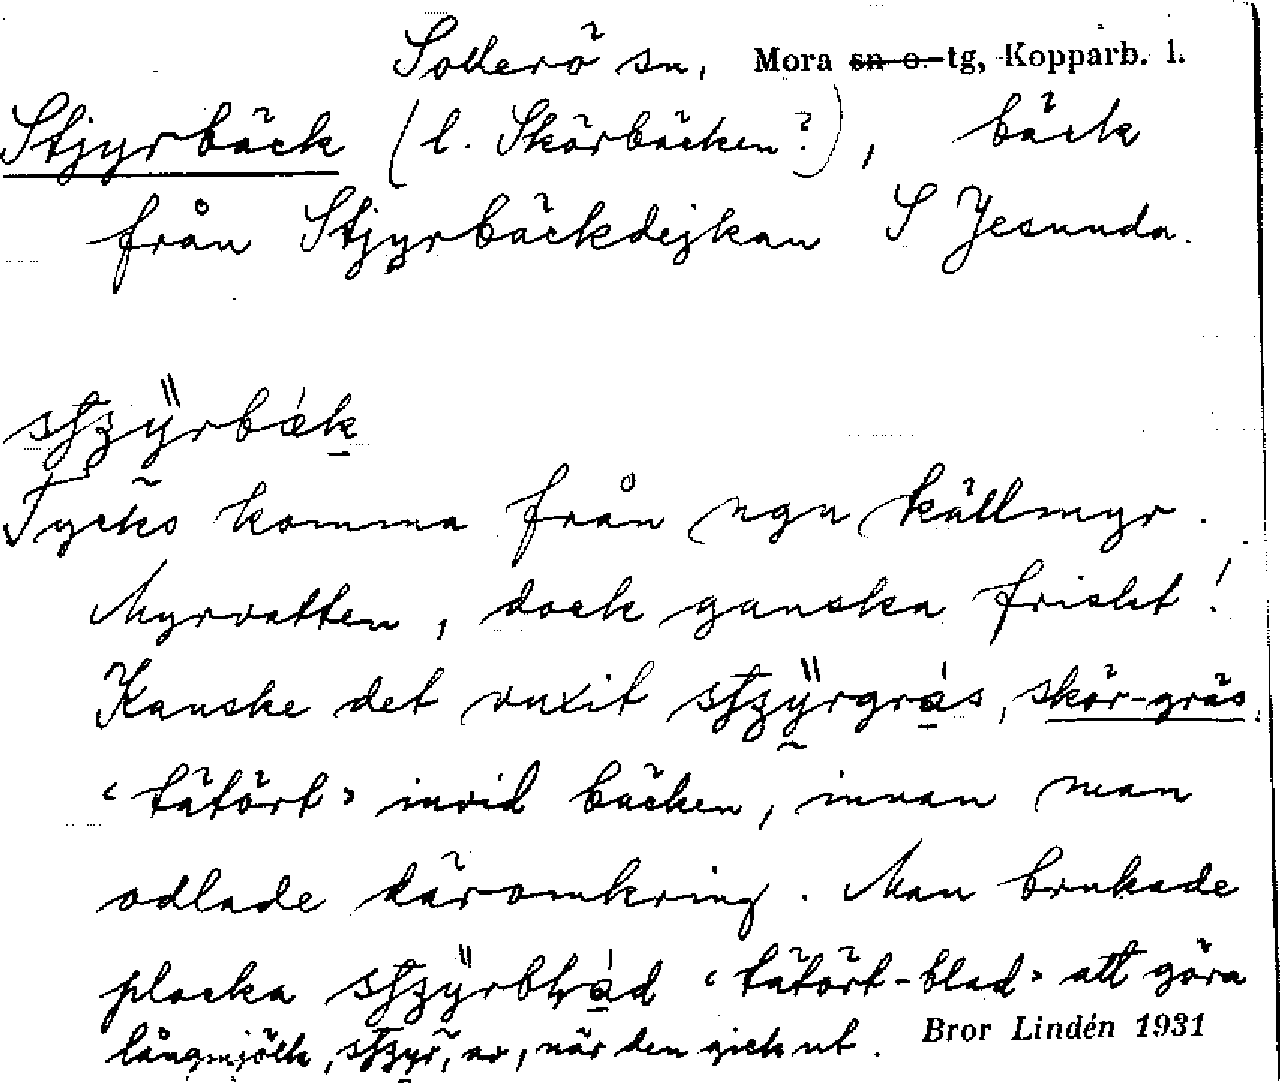 Sollerö sn, Mora sn o. tg, Kopparb. l.
Stjyrbäck (l. Skörbäcken?), bäck
från Stjyrbäckdejkan S Jesunda.
Tycks komma från ngn källmyr.
Myrvatten, dock ganska friskt!
Kanske det vuxit skör-gräs
‹tätört› invid bäcken, innan man
odlade däromkring. Man brukade
plocka ‹tätört-blad› att göra
långmjölk, av, när den gick ut.
Bror Lindén 1931